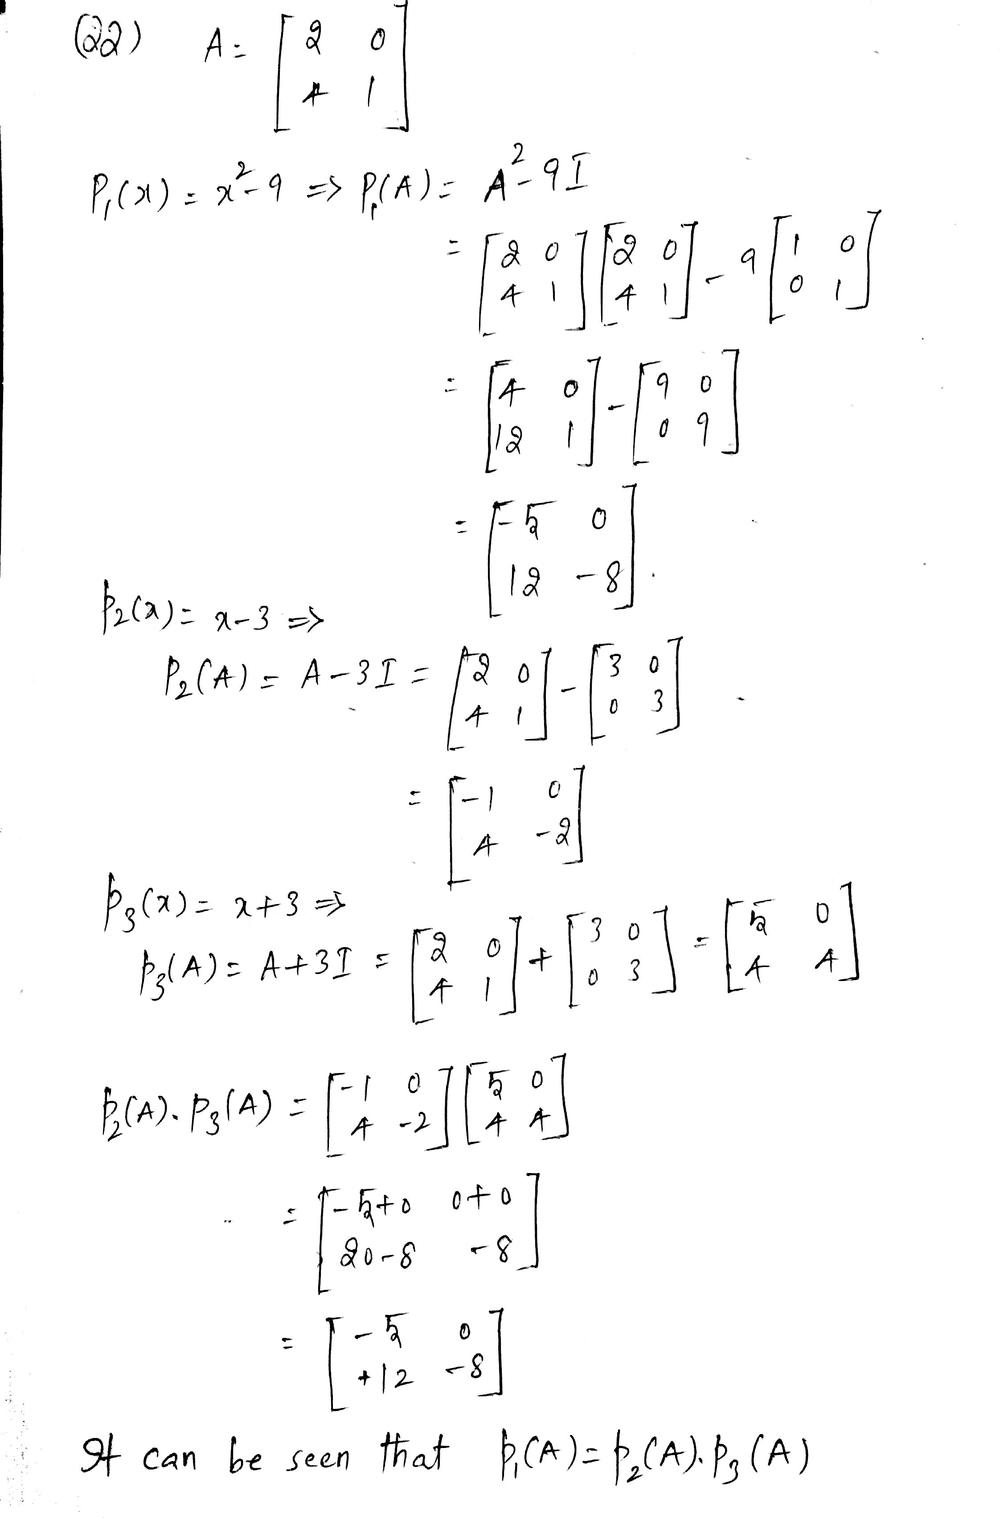 (22) A = [2 0; 4 1]
P₁(x) = x² - 9 => P₁(A) = A² - 9I
= [2 0; 4 1] [2 0; 4 1] - 9 [1 0; 0 1]
= [4 0; 12 1] - [9 0; 0 9]
= [-5 0; 12 -8].
p₂(x) = x - 3 =>
P₂(A) = A - 3I = [2 0; 4 1] - [3 0; 0 3]
= [-1 0; 4 -2]
p₃(x) = x + 3 =>
p₃(A) = A + 3I = [2 0; 4 1] + [3 0; 0 3] = [5 0; 4 4]
p₂(A). p₃(A) = [-1 0; 4 -2] [5 0; 4 4]
= [-5+0 0+0; 20-8 -8]
= [-5 0; +12 -8]
It can be seen that p₁(A) = p₂(A). p₃(A)